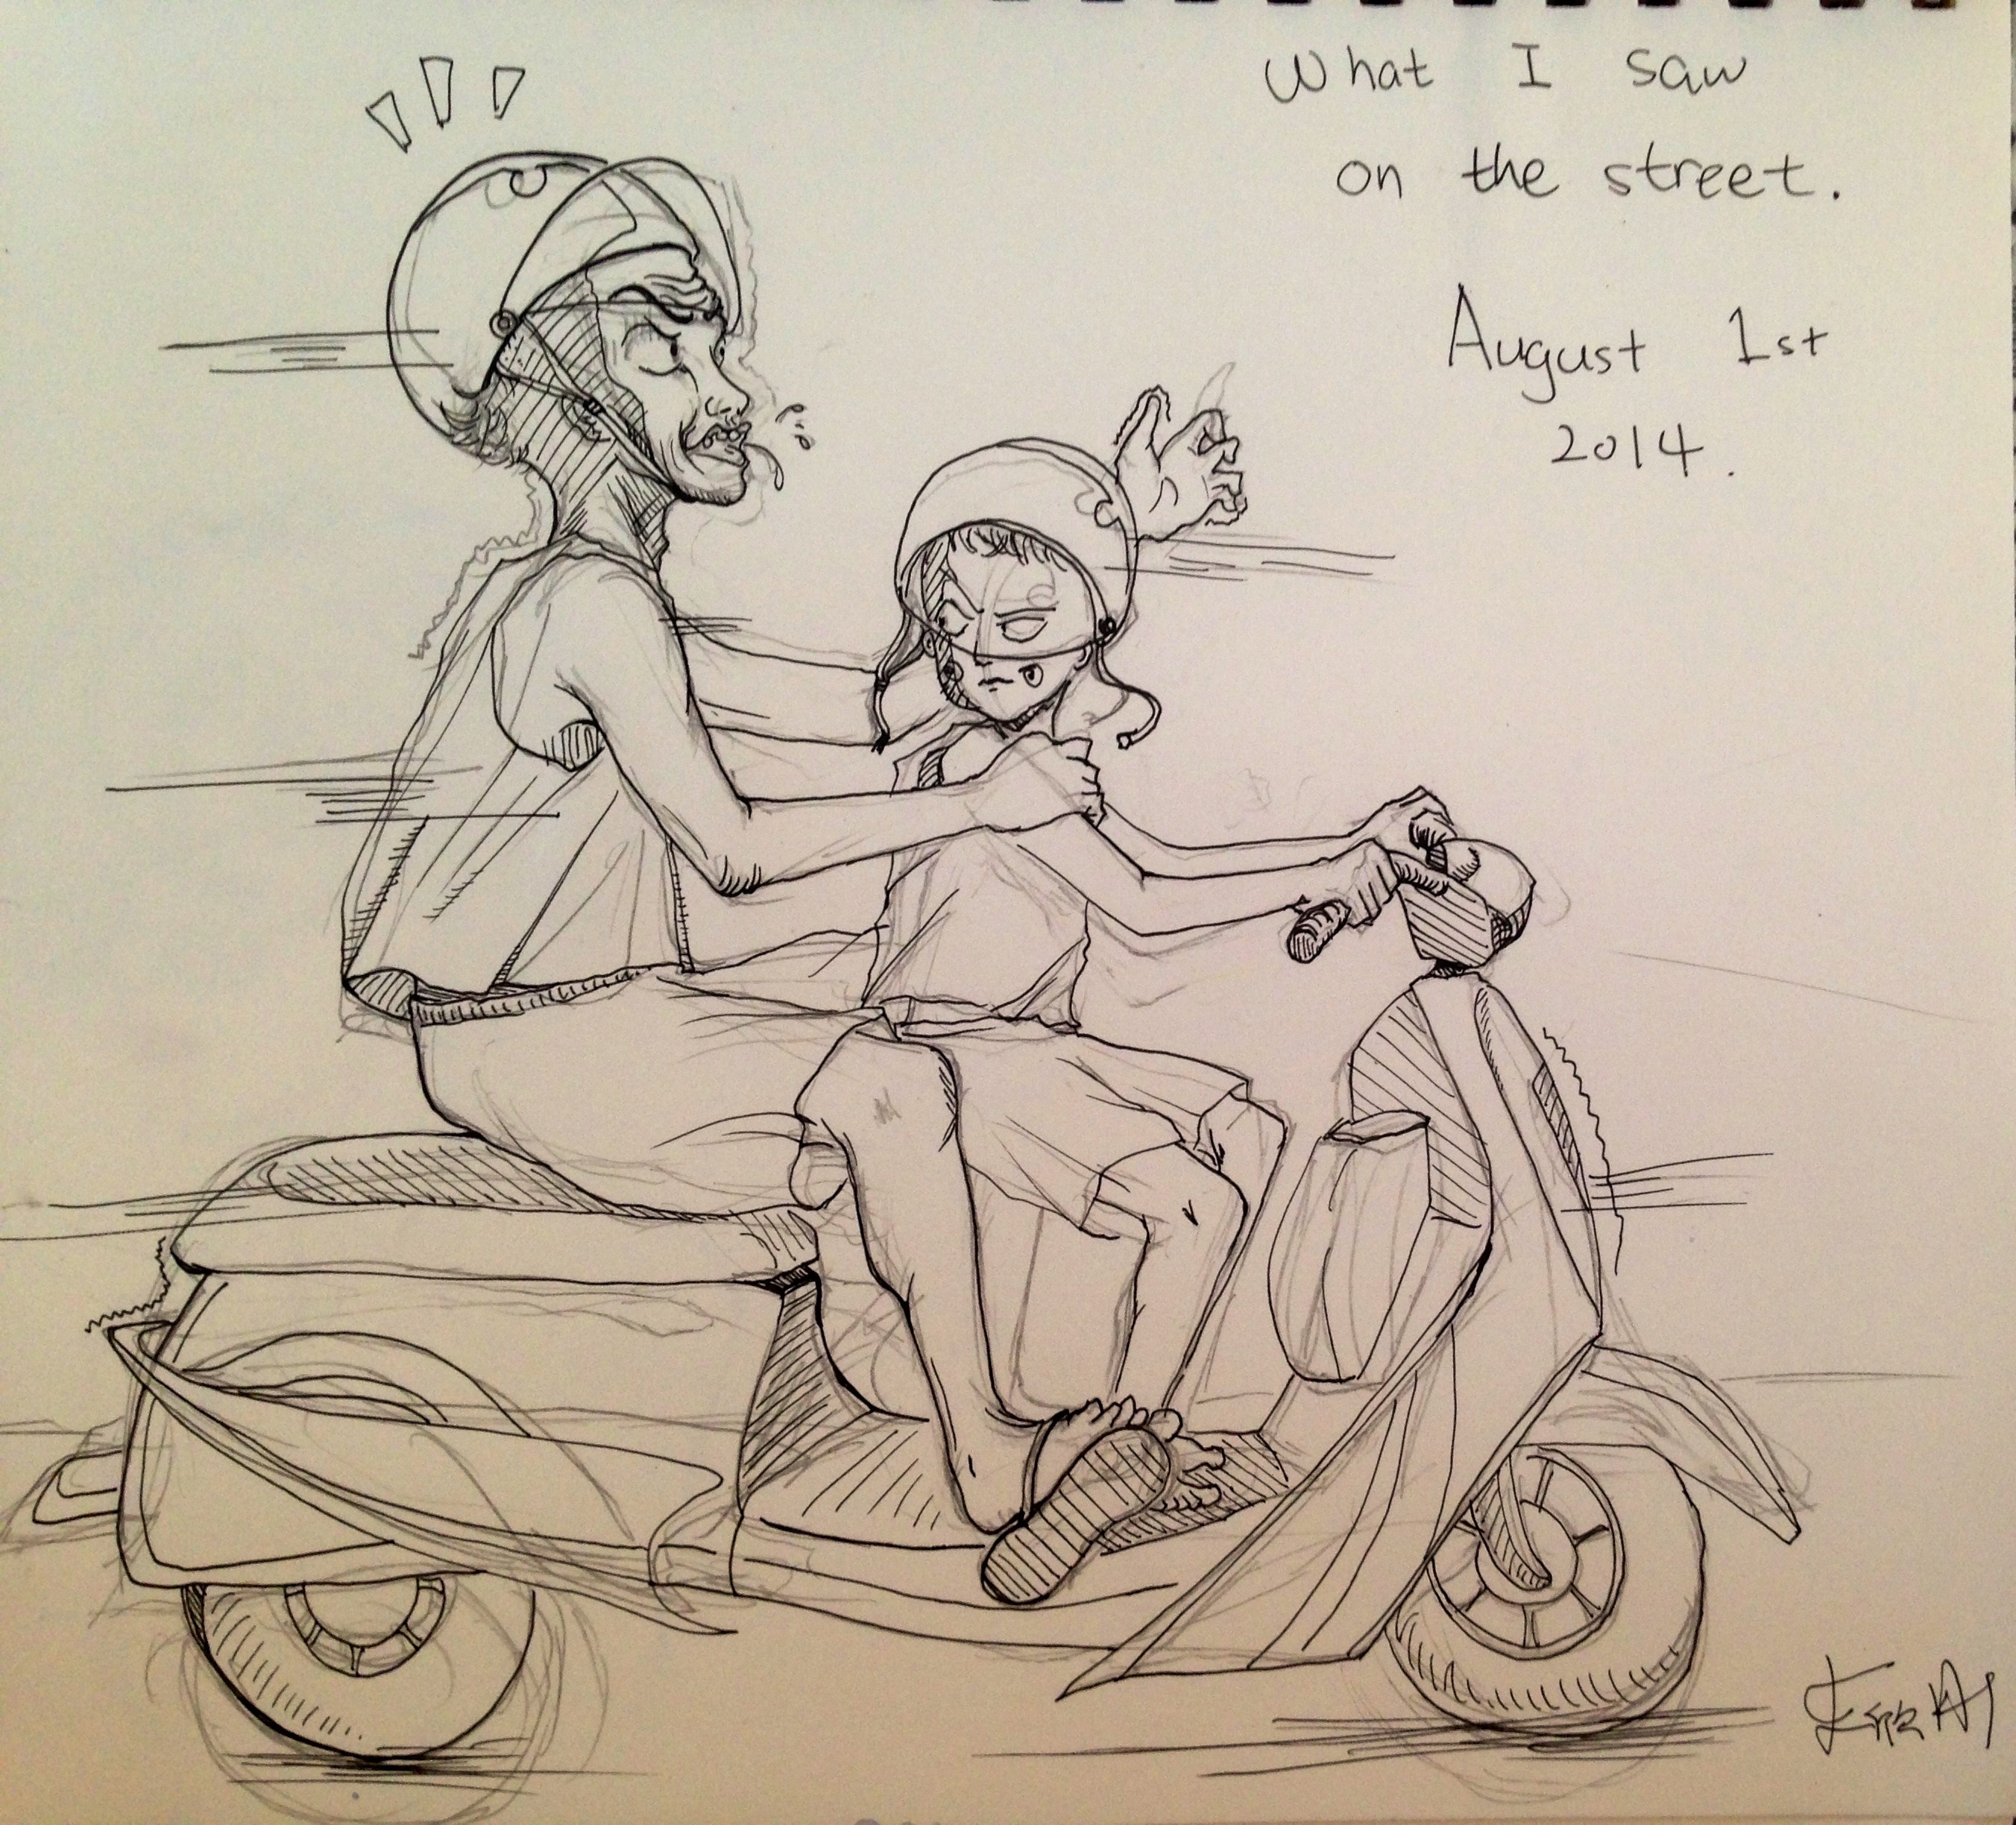 What I saw
on the street.
August 1st
2014.